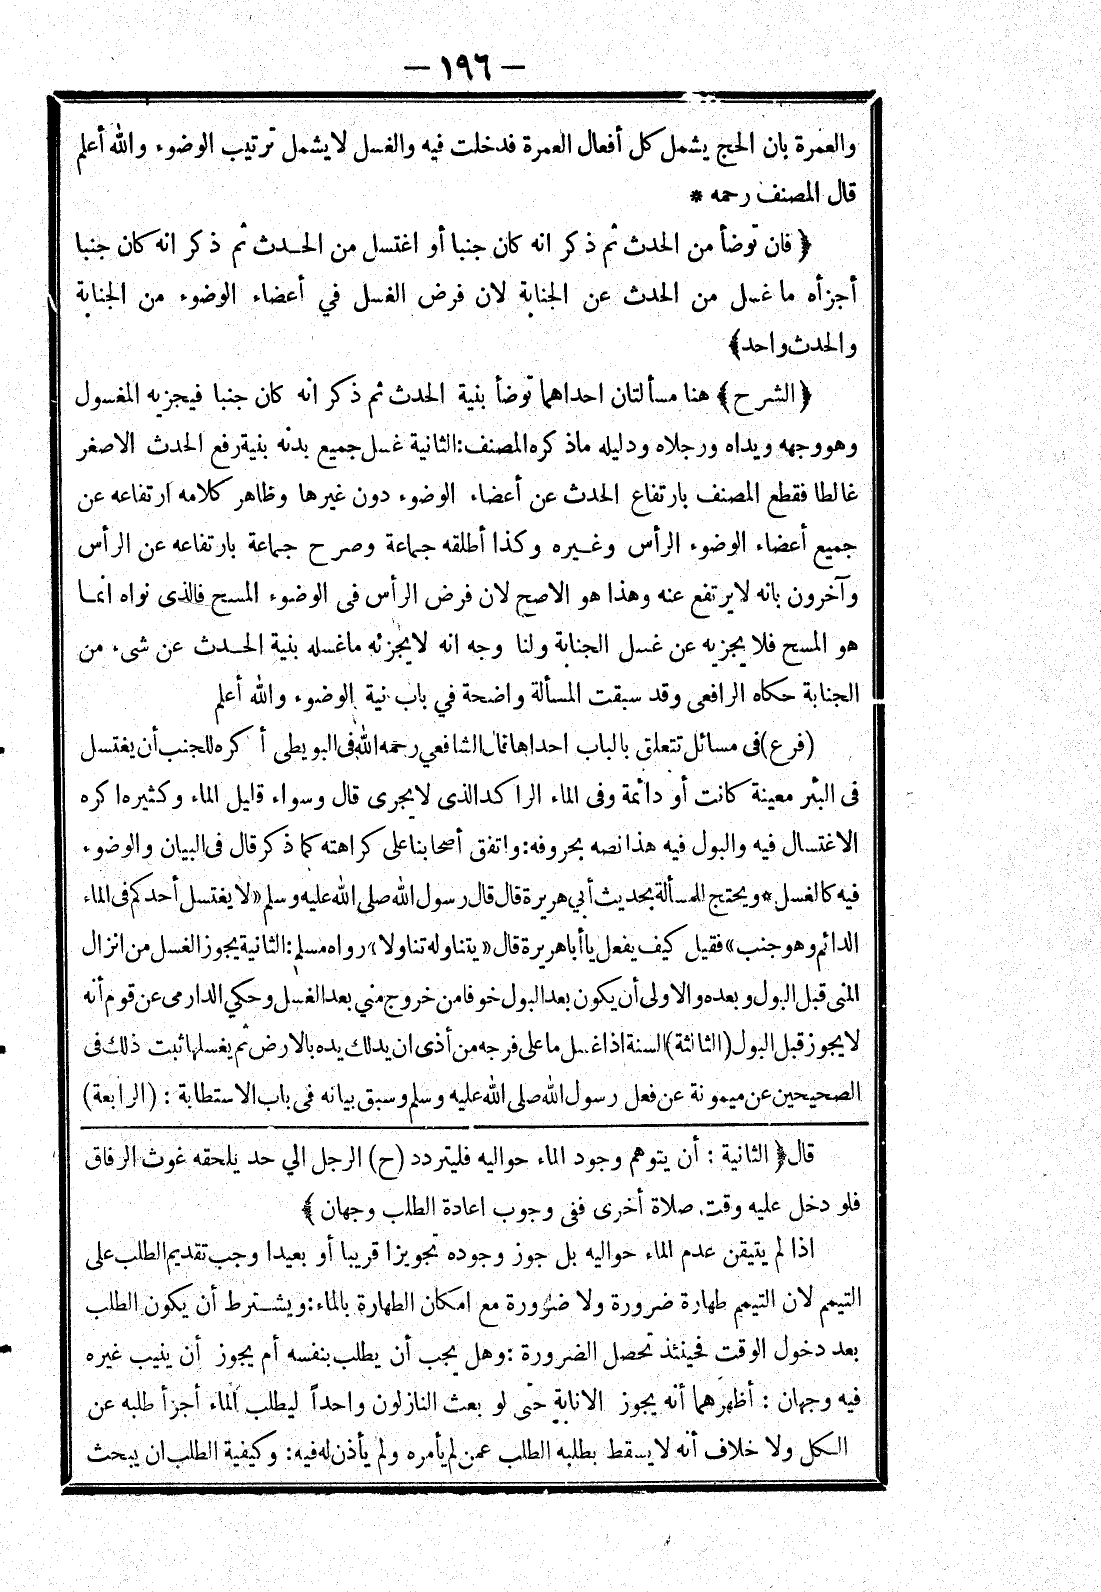 — ١٩٦ —
والعمرة بان الحج يشمل كل أفعال العمرة فدخلت فيه والغسل لا يشمل ترتيب الوضوء والله أعلم
قال المصنف رحمه *
﴿ فان توضأ من الحدث ثم ذكر انه كان جنبا أو اغتسل من الحدث ثم ذكر انه كان جنبا
أجزأه ما غسل من الحدث عن الجنابة لان فرض الغسل في أعضاء الوضوء من الجنابة
والحدث واحد ﴾
﴿ الشرح ﴾ هنا مسألتان احداهما توضأ بنية الحدث ثم ذكر انه كان جنبا فيجزيه المغسول
وهو وجهه ويداه ورجلاه ودليله ماذكره المصنف: الثانية غسل جميع بدنه بنية رفع الحدث الاصغر
غالطا فقطع المصنف بارتفاع الحدث عن أعضاء الوضوء دون غيرها وظاهر كلامه ارتفاعه عن
جميع أعضاء الوضوء الرأس وغيره وكذا أطلقه جماعة وصرح جماعة بارتفاعه عن الرأس
وآخرون بانه لا يرتفع عنه وهذا هو الاصح لان فرض الرأس فى الوضوء المسح فالذى نواه انما
هو المسح فلا يجزيه عن غسل الجنابة ولنا وجه انه لايجزئه ماغسله بنية الحدث عن شىء من
الجنابة حكاه الرافعى وقد سبقت المسألة واضحة في باب نية الوضوء والله أعلم
(فرع) فى مسائل تتعلق بالباب احداها قال الشافعي رحمه الله فى البويطى أكره للجنب أن يغتسل
فى البئر معينة كانت أو دائمة وفى الماء الراكد الذى لايجرى قال وسواء قليل الماء وكثيره اكره
الاغتسال فيه والبول فيه هذا نصه بحروفه: واتفق أصحابنا على كراهته كما ذكر قال فى البيان والوضوء
فيه كالغسل * ويحتج للمسألة بحديث أبي هريرة قال قال رسول الله صلى الله عليه وسلم «لا يغتسل أحدكم فى الماء
الدائم وهو جنب» فقيل كيف يفعل ياأبا هريرة قال «يتناوله تناولا» رواه مسلم: الثانية يجوز الغسل من انزال
المنى قبل البول وبعده والاولى أن يكون بعد البول خوفا من خروج مني بعد الغسل وحكي الدارمى عن قوم أنه
لايجوز قبل البول (الثالثة) السنة اذا غسل ما على فرجه من أذى ان يدلك يده بالارض ثم يغسلها ثبت ذلك فى
الصحيحين عن ميمونة عن فعل رسول الله صلى الله عليه وسلم وسبق بيانه فى باب الاستطابة : (الرابعة)
قال ﴿ الثانية : أن يتوهم وجود الماء حواليه فليتردد (ح) الرجل الي حد يلحقه غوث الرفاق
فلو دخل عليه وقت صلاة أخرى ففى وجوب اعادة الطلب وجهان ﴾
اذا لم يتيقن عدم الماء حواليه بل جوز وجوده تجويزا قريبا أو بعيدا وجب تقديم الطلب على
التيمم لان التيمم طهارة ضرورة ولا ضرورة مع امكان الطهارة بالماء: ويشترط أن يكون الطلب
بعد دخول الوقت فحينئذ تحصل الضرورة : وهل يجب أن يطلب بنفسه أم يجوز أن ينيب غيره
فيه وجهان : أظهرهما أنه يجوز الانابة حتى لو بعث النازلون واحداً ليطلب الماء أجزأ طلبه عن
الكل ولا خلاف أنه لا يسقط بطلبه الطلب عمن لم يأمره ولم يأذن له فيه: وكيفية الطلب ان يبحث